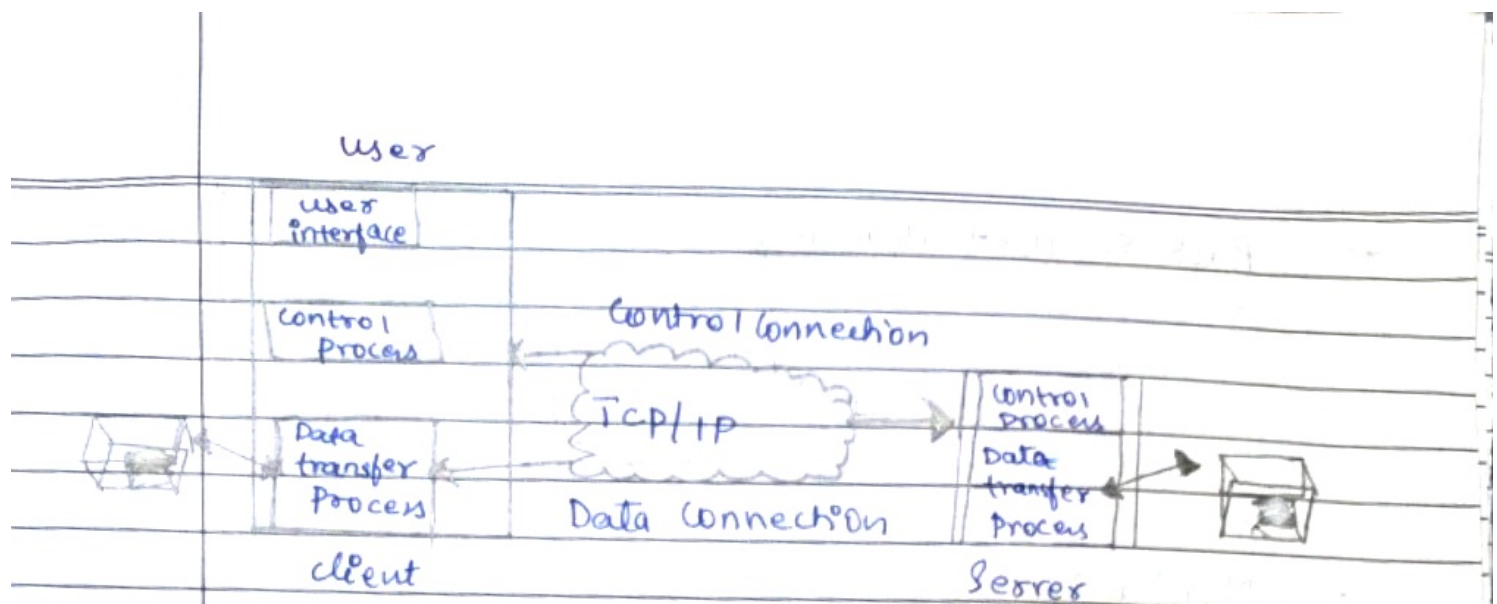 user
user
interface
control
process
Control Connection
TCP/IP
control
process
Data
transfer
process
Data
transfer
process
Data Connection
client
Server